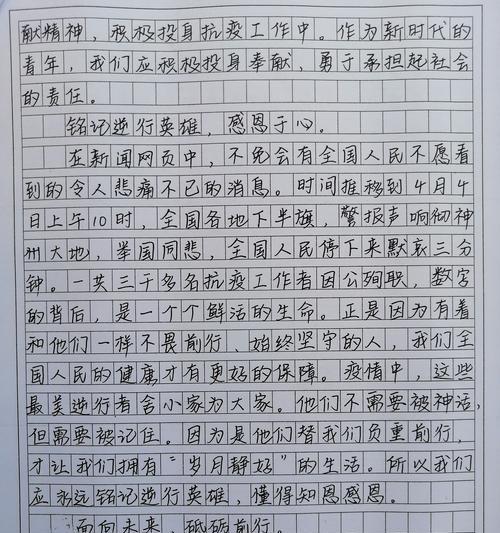 献精神，积极投身抗疫工作中。作为新时代的
青年，我们应积极投身奉献，勇于承担起社会
的责任。
铭记逆行英雄，感恩于心。
在新闻网页中，不免会有全国人民不愿看
到的令人悲痛不已的消息。时间推移到4月4
日上午10时，全国各地下半旗，警报声响彻神
州大地，举国同悲，全国人民停下来默哀三分
钟。一共三千多名抗疫工作者因公殉职，数字
的背后，是一个个鲜活的生命。正是因为有着
和他们一样不畏前行、始终坚守的人，我们全
国人民的健康才有更好的保障。疫情中，这些
最美逆行者舍小家为大家。他们不需要被神话，
但需要被记住。因为是他们替我们负重前行，
才让我们拥有“岁月静好”的生活。所以我们
应永远铭记逆行英雄，懂得知恩感恩。
面向未来，砥砺前行。